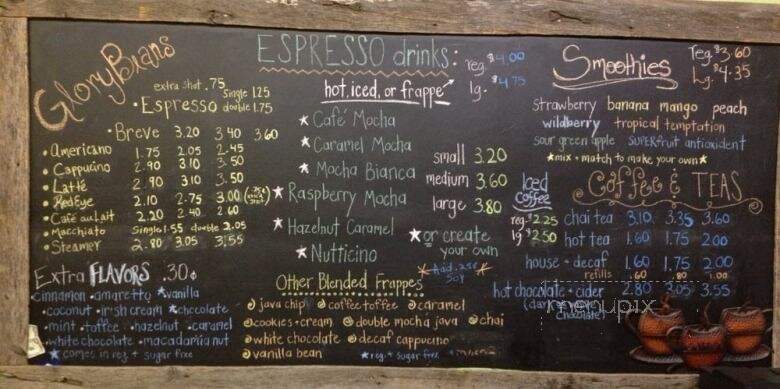 GloryBeans
extra shot .75
Espresso single 1.25
double 1.75
•Breve 3.20 3.40 3.60
•Americano 1.75 2.05 2.45
•Cappucino 2.90 3.10 3.50
•Latté 2.90 3.10 3.50
•RedEye 2.10 2.75 3.00
•Café au Lait 2.20 2.40 2.60
•Macchiato single 1.55 double 2.05
•Steamer 2.80 3.05 3.55
Extra FLAVORS .30¢
•cinnamon •amaretto ★vanilla
•coconut •irish cream ★chocolate
•mint •toffee •hazelnut •caramel
•white chocolate •macadamia nut
★ comes in reg + sugar free
ESPRESSO drinks:
reg. $4.00
lg. $4.75
hot, iced, or frappe
★ Café Mocha
★ Caramel Mocha
★ Mocha Bianca
★ Raspberry Mocha
★ Hazelnut Caramel
★ Nutticino
small 3.20
medium 3.60
large 3.80
★or create
your own
★add .25¢
soy
Other Blended Frappes
java chip coffee toffee caramel
cookies + cream double mocha java chai
white chocolate decaf cappuccino
vanilla bean ★reg. + sugar free
Smoothies
reg. $3.60
Lg. $4.35
strawberry banana mango peach
wildberry tropical temptation
sour green apple SUPERfruit antioxident
★mix + match to make your own★
Iced
Coffee
reg. 2.25
lg 2.50
COFFEE & TEAS
chai tea 3.10 3.35 3.60
hot tea 1.60 1.75 2.00
house - decaf 1.60 1.75 2.00
refills .60 .80 1.00
hot chocolate - cider 2.80 3.05 3.55
chocolate)
menupix